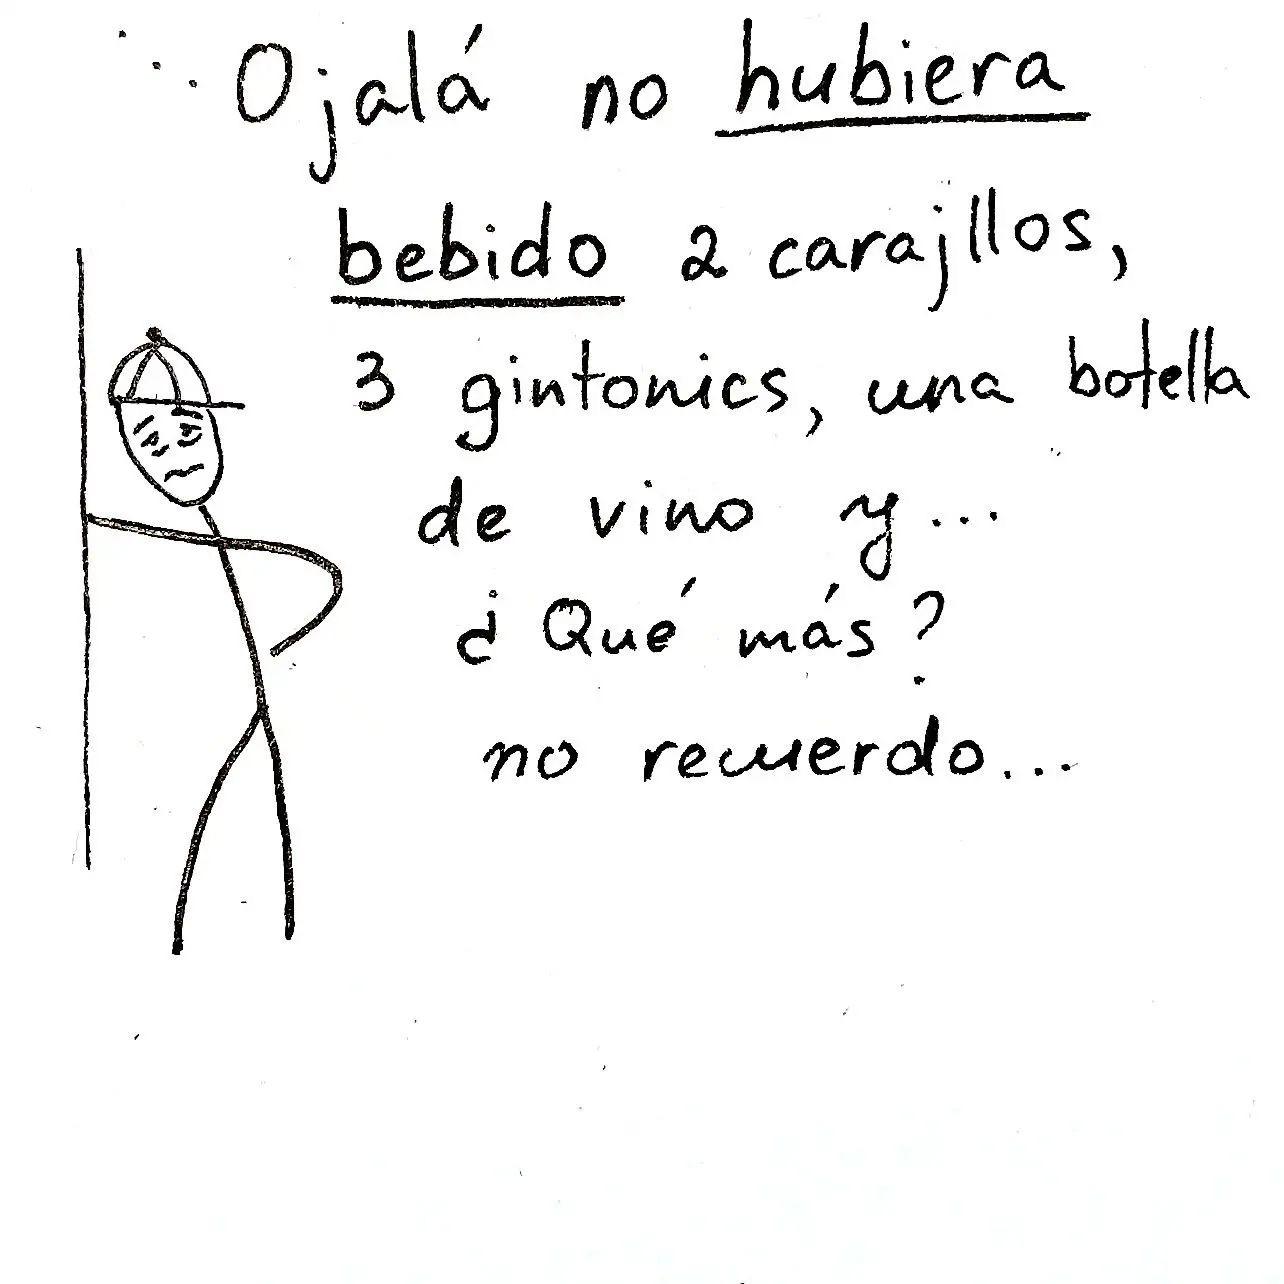 Ojalá no hubiera
bebido 2 carajllos,
3 gintonics, una botella
de vino y...
¿Qué más?
no recuerdo...